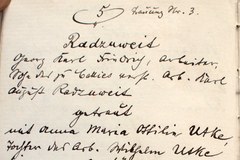 5
Trauung Nr. 3.
Radzuweit
Georg Karl Friedrich, Arbeiter,
Sohn des zu verst. Arb. Karl
August Radzuweit
getraut
mit Anna Maria Ottilie Utke,
Tochter des Arb. Wilhelm Utke